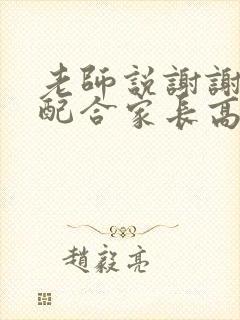 老師説謝謝
配合家長高
趙毅亮